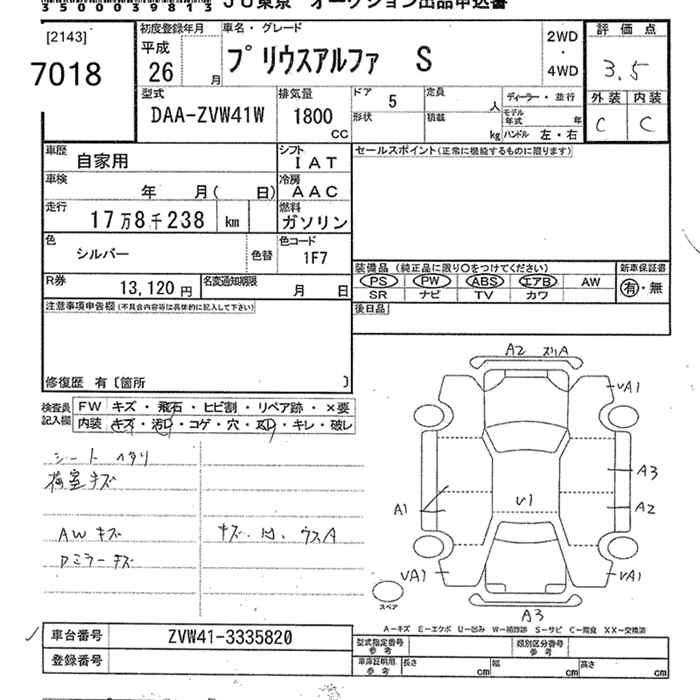 3500039813 JU東京 オークション出品申込書
[2143]
7018
初度登録年月
平成
26 月
車名・グレード
プリウスアルファ S
2WD
・
4WD
評価点
3.5
外装 内装
C C
型式
DAA-ZVW41W
排気量
1800
CC
ドア 5
形状
定員 人
積載 kg
ディーラー・並行
モデル年式 年
ハンドル 左・右
車歴 自家用
シフト IAT
車検 年 月( 日)
冷房 AAC
走行 17万8千238 km
燃料 ガソリン
色 シルバー
色替
色コード 1F7
R券 13,120円
名変通知期限 月 日
セールスポイント(正常に機能するものに限ります)
装備品 (純正品に限り○をつけてください)
新車保証書
PS PW ABS エアB AW
SR ナビ TV カワ
有・無
後日品
注意事項申告欄(不具合内容等は具体的に記入して下さい)
修復歴 有〔箇所 〕
検査員記入欄
FW キズ・飛石・ヒビ割・リペア跡・×要
内装 キズ・汚レ・コゲ・穴・スレ・キレ・破レ
シート ヘタリ
荷室キズ
AWキズ
Dミラーキズ
キズ、凹、ウスA
A2 スリA
VA1
A3
A2
A1
V1
VA1
VA1
A3
スペア
A-キズ E-エクボ U-凹み W-補修跡 S-サビ C-腐食 XX-交換済
車台番号 ZVW41-3335820
登録番号
型式指定番号 参考
類別区分番号 参考
車庫証明用 参考
長さ cm
幅 cm
高さ cm